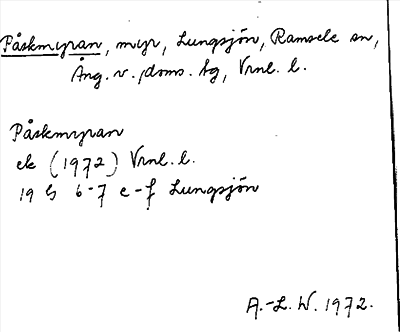 Påskmyran, myr, Lungsjön, Ramsele sn,
Ång. v. doms. tg, Vrnl. l.
Påskmyran
ek (1972) Vrnl. l.
19 G 6-7 e-f Lungsjön
A.-L. W. 1972.